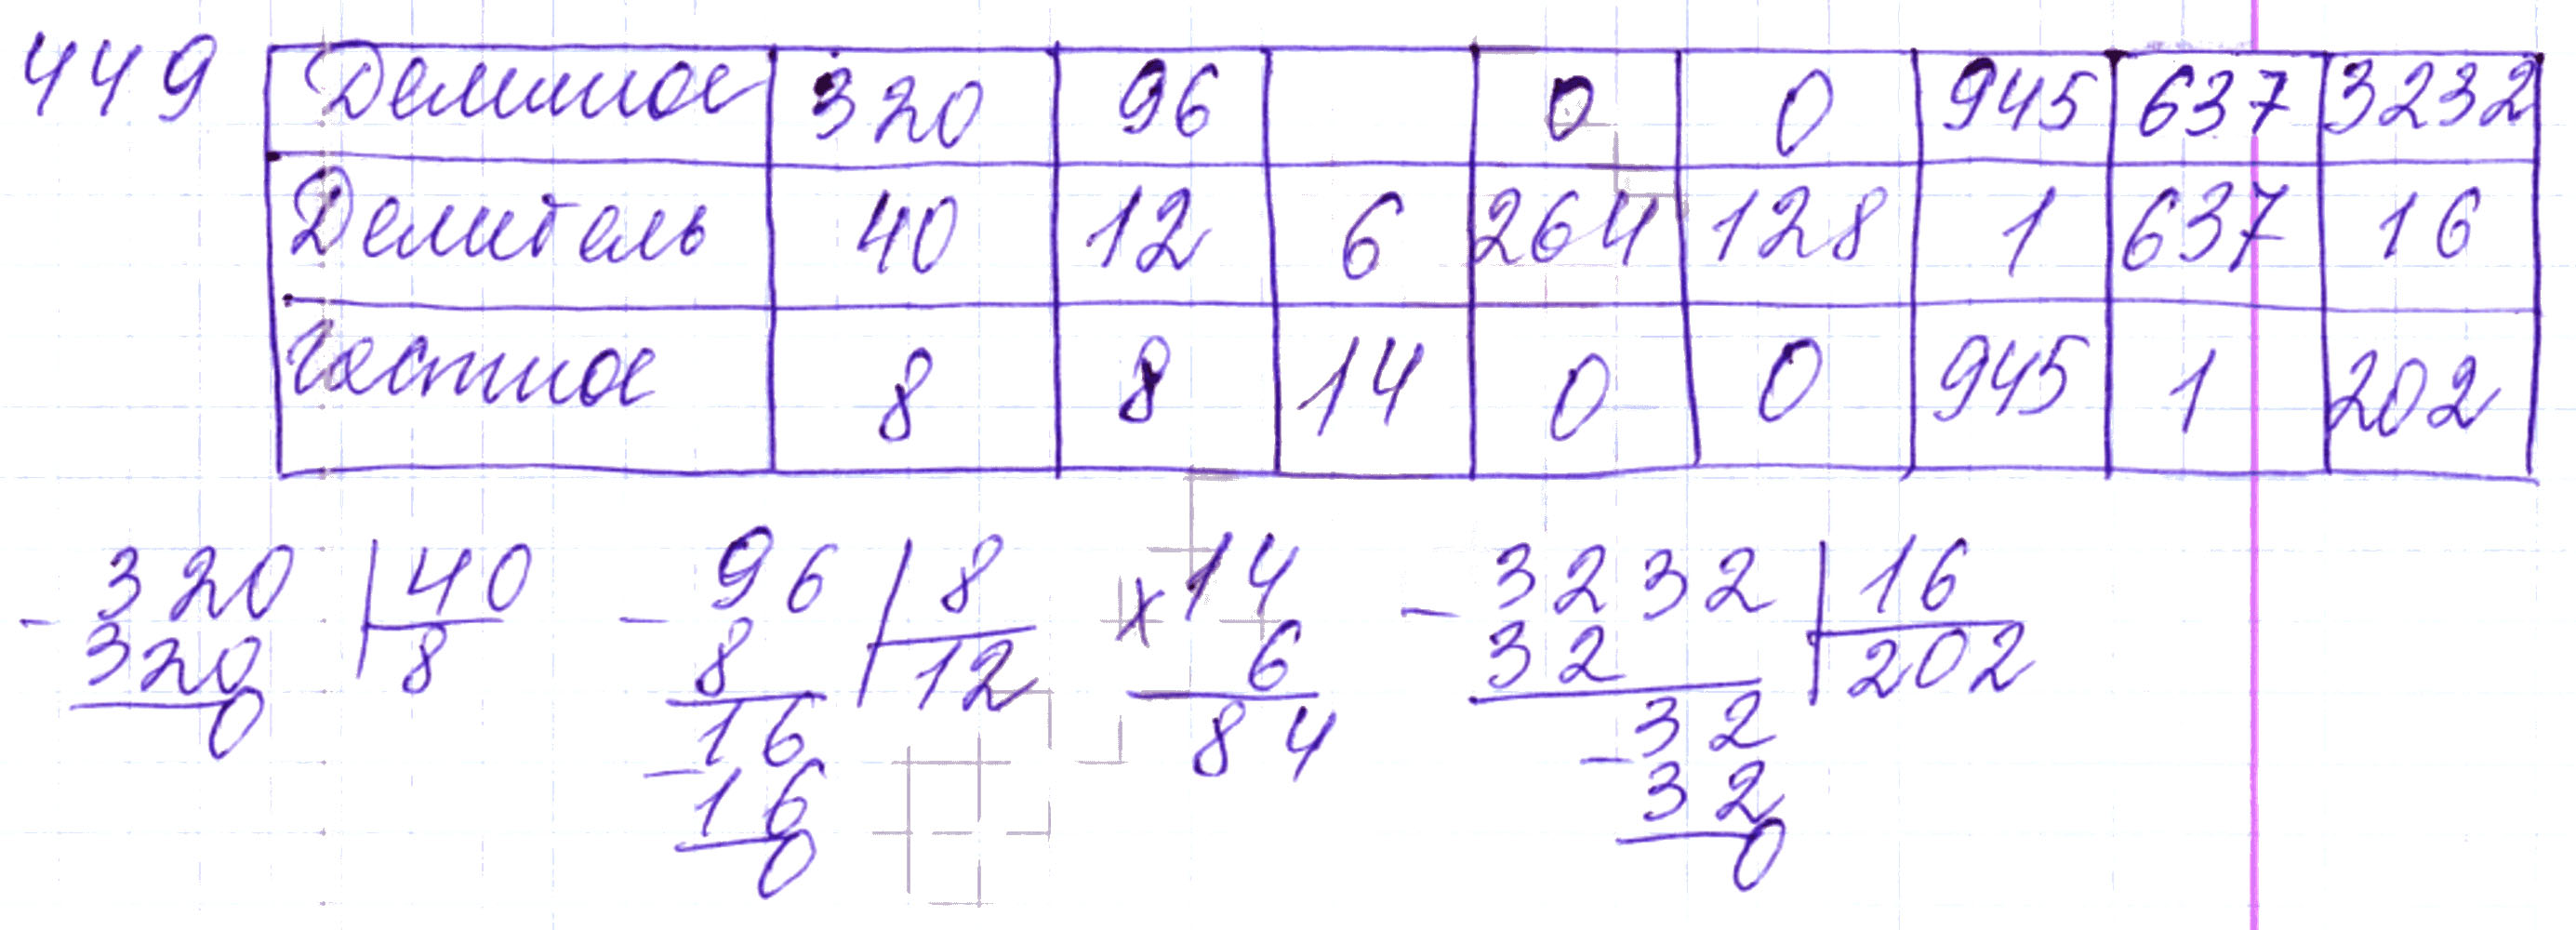 449 Делимое 320 96 0 0 945 637 3232
Делитель 40 12 6 264 128 1 637 16
Частное 8 8 14 0 0 945 1 202
- 320 | 40 - 96 | 8 × 14 - 3232 | 16
320 8 8 12 6 32 202
0 16 84 - 32
- 16 32
0 0